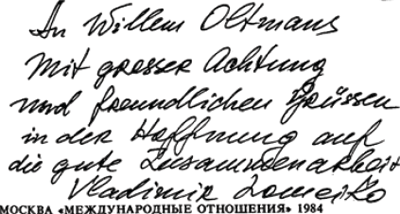 An Willem Oltmans
Mit grosser Achtung
und freundlichen Grüssen
in der Hoffnung auf
die gute Zusammenarbeit
Vladimir Lomeiko
МОСКВА «МЕЖДУНАРОДНЫЕ ОТНОШЕНИЯ» 1984